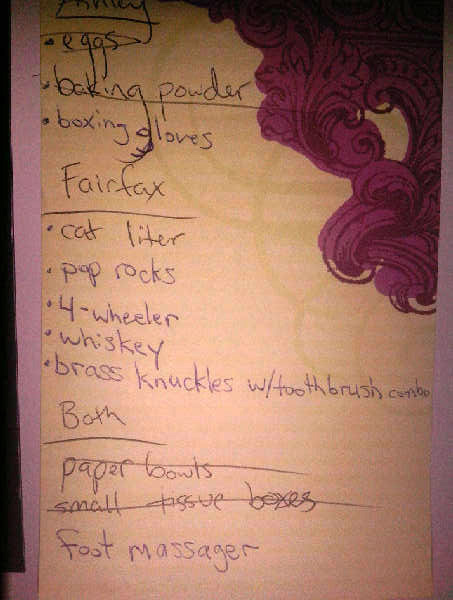 • eggs
• baking powder
• boxing gloves
Fairfax
• cat liter
• pop rocks
• 4-wheeler
• whiskey
• brass knuckles w/toothbrush combo
Both
paper bowls
small tissue boxes
foot massager